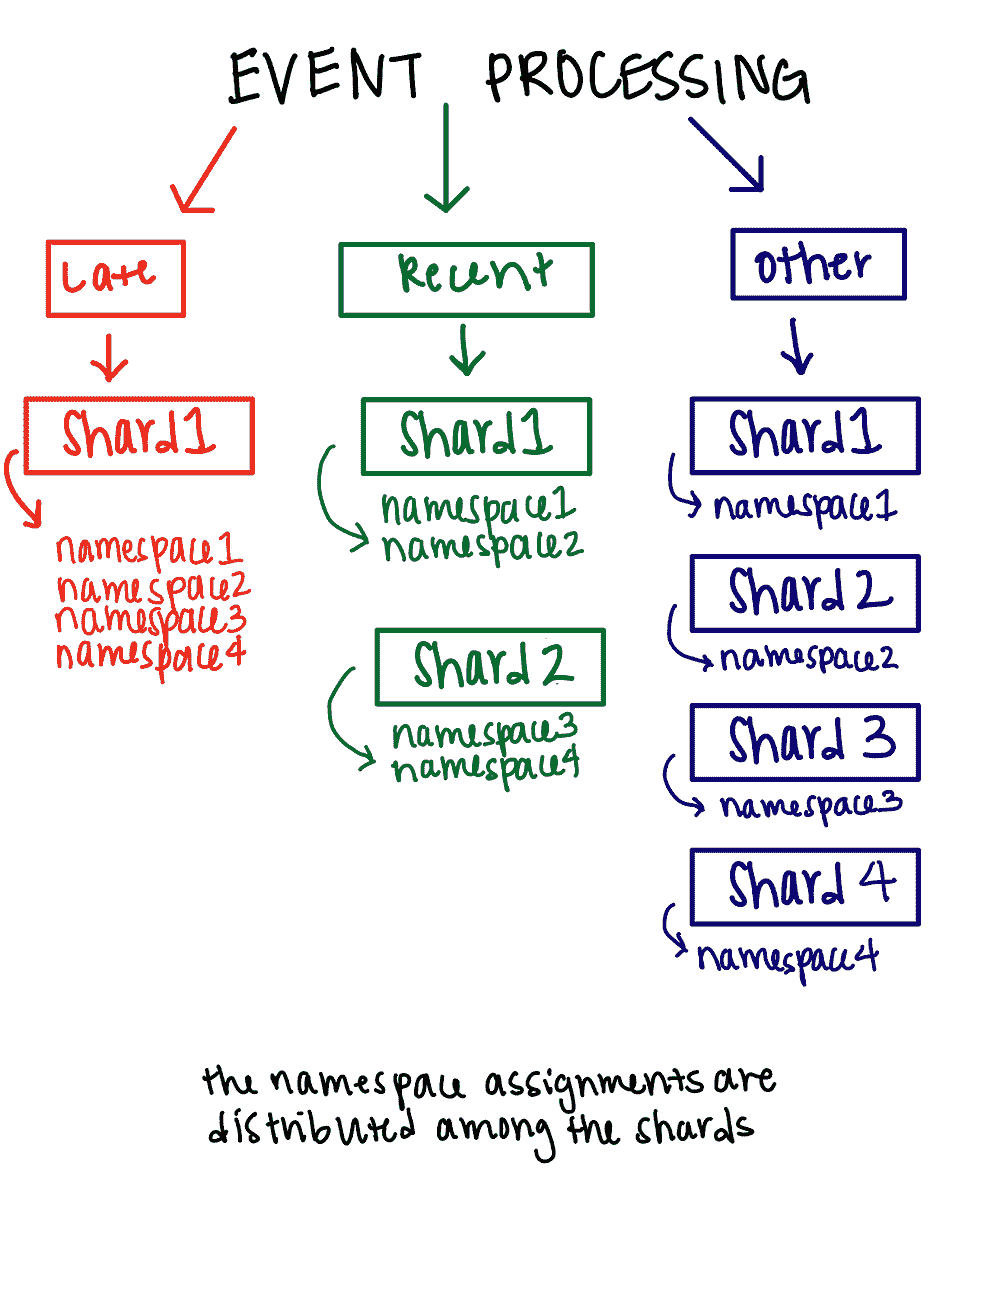 EVENT PROCESSING
Late
Shard 1
namespace1
namespace2
namespace3
namespace4
Recent
Shard 1
namespace1
namespace2
Shard 2
namespace3
namespace4
other
Shard 1
namespace1
Shard 2
namespace2
Shard 3
namespace3
Shard 4
namespace4
the namespace assignments are
distributed among the shards